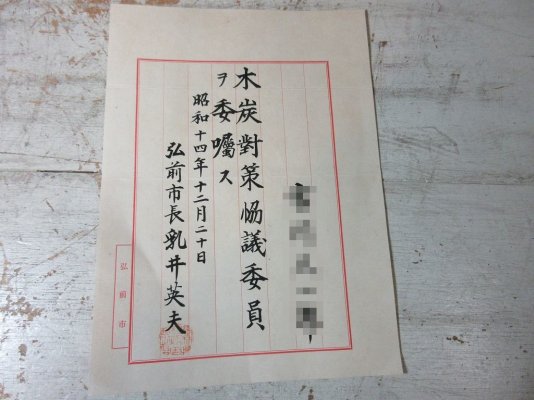 木炭對策協議委員
ヲ委囑ス
昭和十四年十二月二十日
弘前市長乳井英夫
弘前市